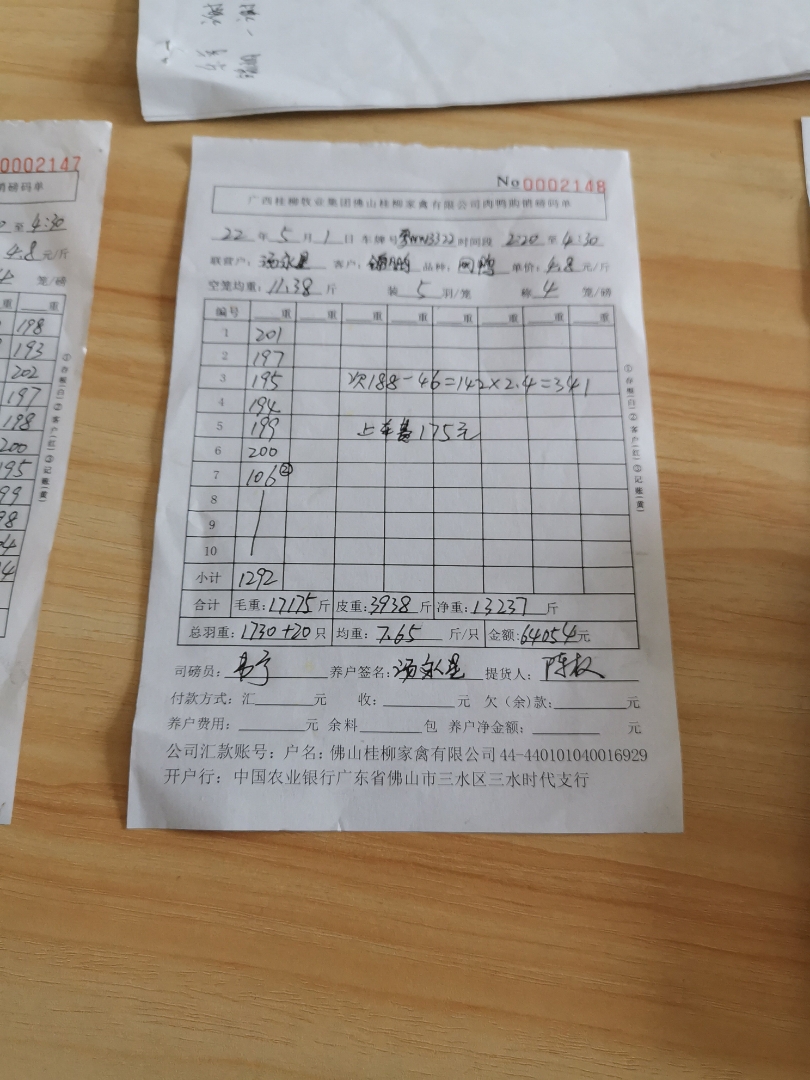 0002147
销磅码单
至 4:30
4.8 元/斤
4 笼/磅
重 重
198
193
202
197
198
200
195
99
98
04
14
①存根(白)②客户(红)③记账(黄)
No 0002148
广西桂柳牧业集团佛山桂柳家禽有限公司肉鸭购销磅码单
22 年 5 月 1 日 车牌号 3322 时间段 2:20 至 4:30
联营户: 汤永星 客户: 鹏 品种: 单价: 4.8 元/斤
空笼均重: 11.38 斤 装 5 羽/笼 称 4 笼/磅
编号 重 重 重 重 重 重 重 重
1 201
2 197
3 195 次188-46=142×2.4=341
4 194
5 199 上车费175元
6 200
7 106②
8
9
10
小计 1292
合计 毛重: 17175 斤 皮重: 3938 斤 净重: 13237 斤
总羽重: 1730+20 只 均重: 7.65 斤/只 金额: 64054 元
司磅员: 养户签名: 汤永星 提货人: 陈
付款方式: 汇 元 收: 元 欠(余)款: 元
养户费用: 元 余料 包 养户净金额: 元
公司汇款账号: 户名: 佛山桂柳家禽有限公司 44-440101040016929
开户行: 中国农业银行广东省佛山市三水区三水时代支行
①存根(白)②客户(红)③记账(黄)